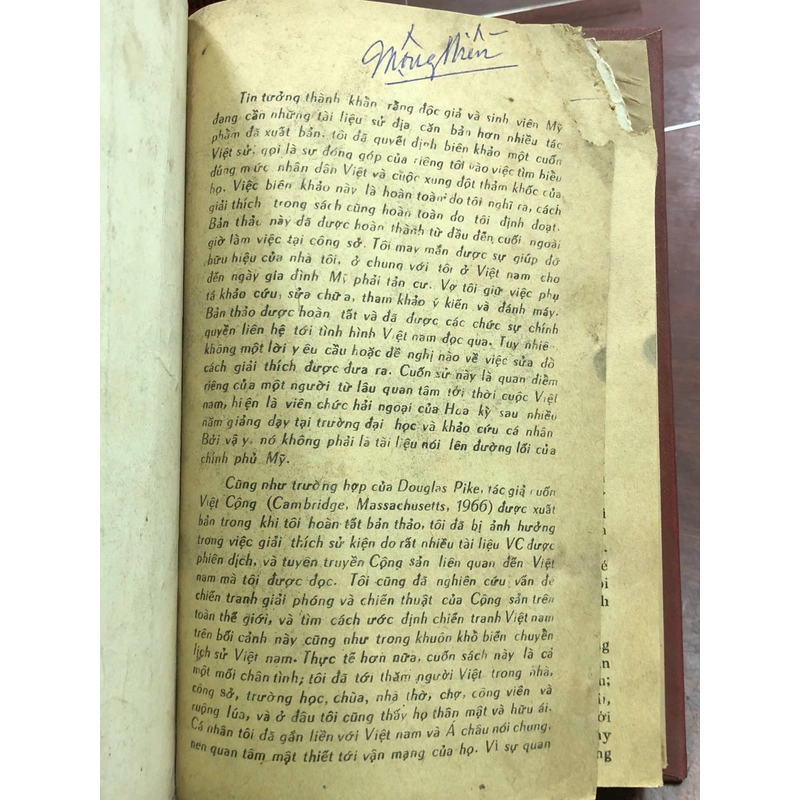 Mộng Hiền
Tin tưởng thành khẩn rằng độc giả và sinh viên Mỹ
đang cần những tài liệu sử địa căn bản hơn nhiều tác
phẩm đã xuất bản, tôi đã quyết định biên khảo một cuốn
Việt sử, gọi là sự đóng góp của riêng tôi vào việc tìm hiểu
đúng mức nhân dân Việt và cuộc xung đột thảm khốc của
họ. Việc biên khảo này là hoàn toàn do tôi nghĩ ra, cách
giải thích trong sách cũng hoàn toàn do tôi định đoạt.
Bản thảo này đã được hoàn thành từ đầu đến cuối ngoài
giờ làm việc tại công sở. Tôi may mắn được sự giúp đỡ
hữu hiệu của nhà tôi, ở chung với tôi ở Việt nam cho
đến ngày gia đình Mỹ phải tản cư. Vợ tôi giữ việc phụ
tá khảo cứu, sửa chữa, tham khảo ý kiến và đánh máy.
Bản thảo được hoàn tất và đã được các chức sự chính
quyền liên hệ tới tình hình Việt nam đọc qua. Tuy nhiên
không một lời yêu cầu hoặc đề nghị nào về việc sửa đổi
cách giải thích được đưa ra. Cuốn sử này là quan điểm
riêng của một người từ lâu quan tâm tới thời cuộc Việt
nam, hiện là viên chức hải ngoại của Hoa kỳ sau nhiều
năm giảng dạy tại trường đại học và khảo cứu cá nhân
Bởi vậy, nó không phải là tài liệu nói lên đường lối của
chính phủ Mỹ.
Cũng như trường hợp của Douglas Pike, tác giả cuốn
Việt Cộng (Cambridge, Massachusetts, 1966) được xuất
bản trong khi tôi hoàn tất bản thảo, tôi đã bị ảnh hưởng
trong việc giải thích sử kiện do rất nhiều tài liệu VC được
phiên dịch, và tuyên truyền Cộng sản liên quan đến Việt
nam mà tôi được đọc. Tôi cũng đã nghiên cứu vấn đề
chiến tranh giải phóng và chiến thuật của Cộng sản trên
toàn thế giới, và tìm cách ước định chiến tranh Việt nam
trên bối cảnh này cũng như trong khuôn khổ biến chuyển
lịch sử Việt nam. Thực tế hơn nữa, cuốn sách này là cả
một mối chân tình; tôi đã tới thăm người Việt trong nhà,
công sở, trường học, chùa, nhà thờ, chợ, công viên và
ruộng lúa, và ở đâu tôi cũng thấy họ thân mật và hữu ái.
Cá nhân tôi đã gắn liền với Việt nam và Á châu nói chung,
nên quan tâm mật thiết tới vận mạng của họ. Vì sự quan